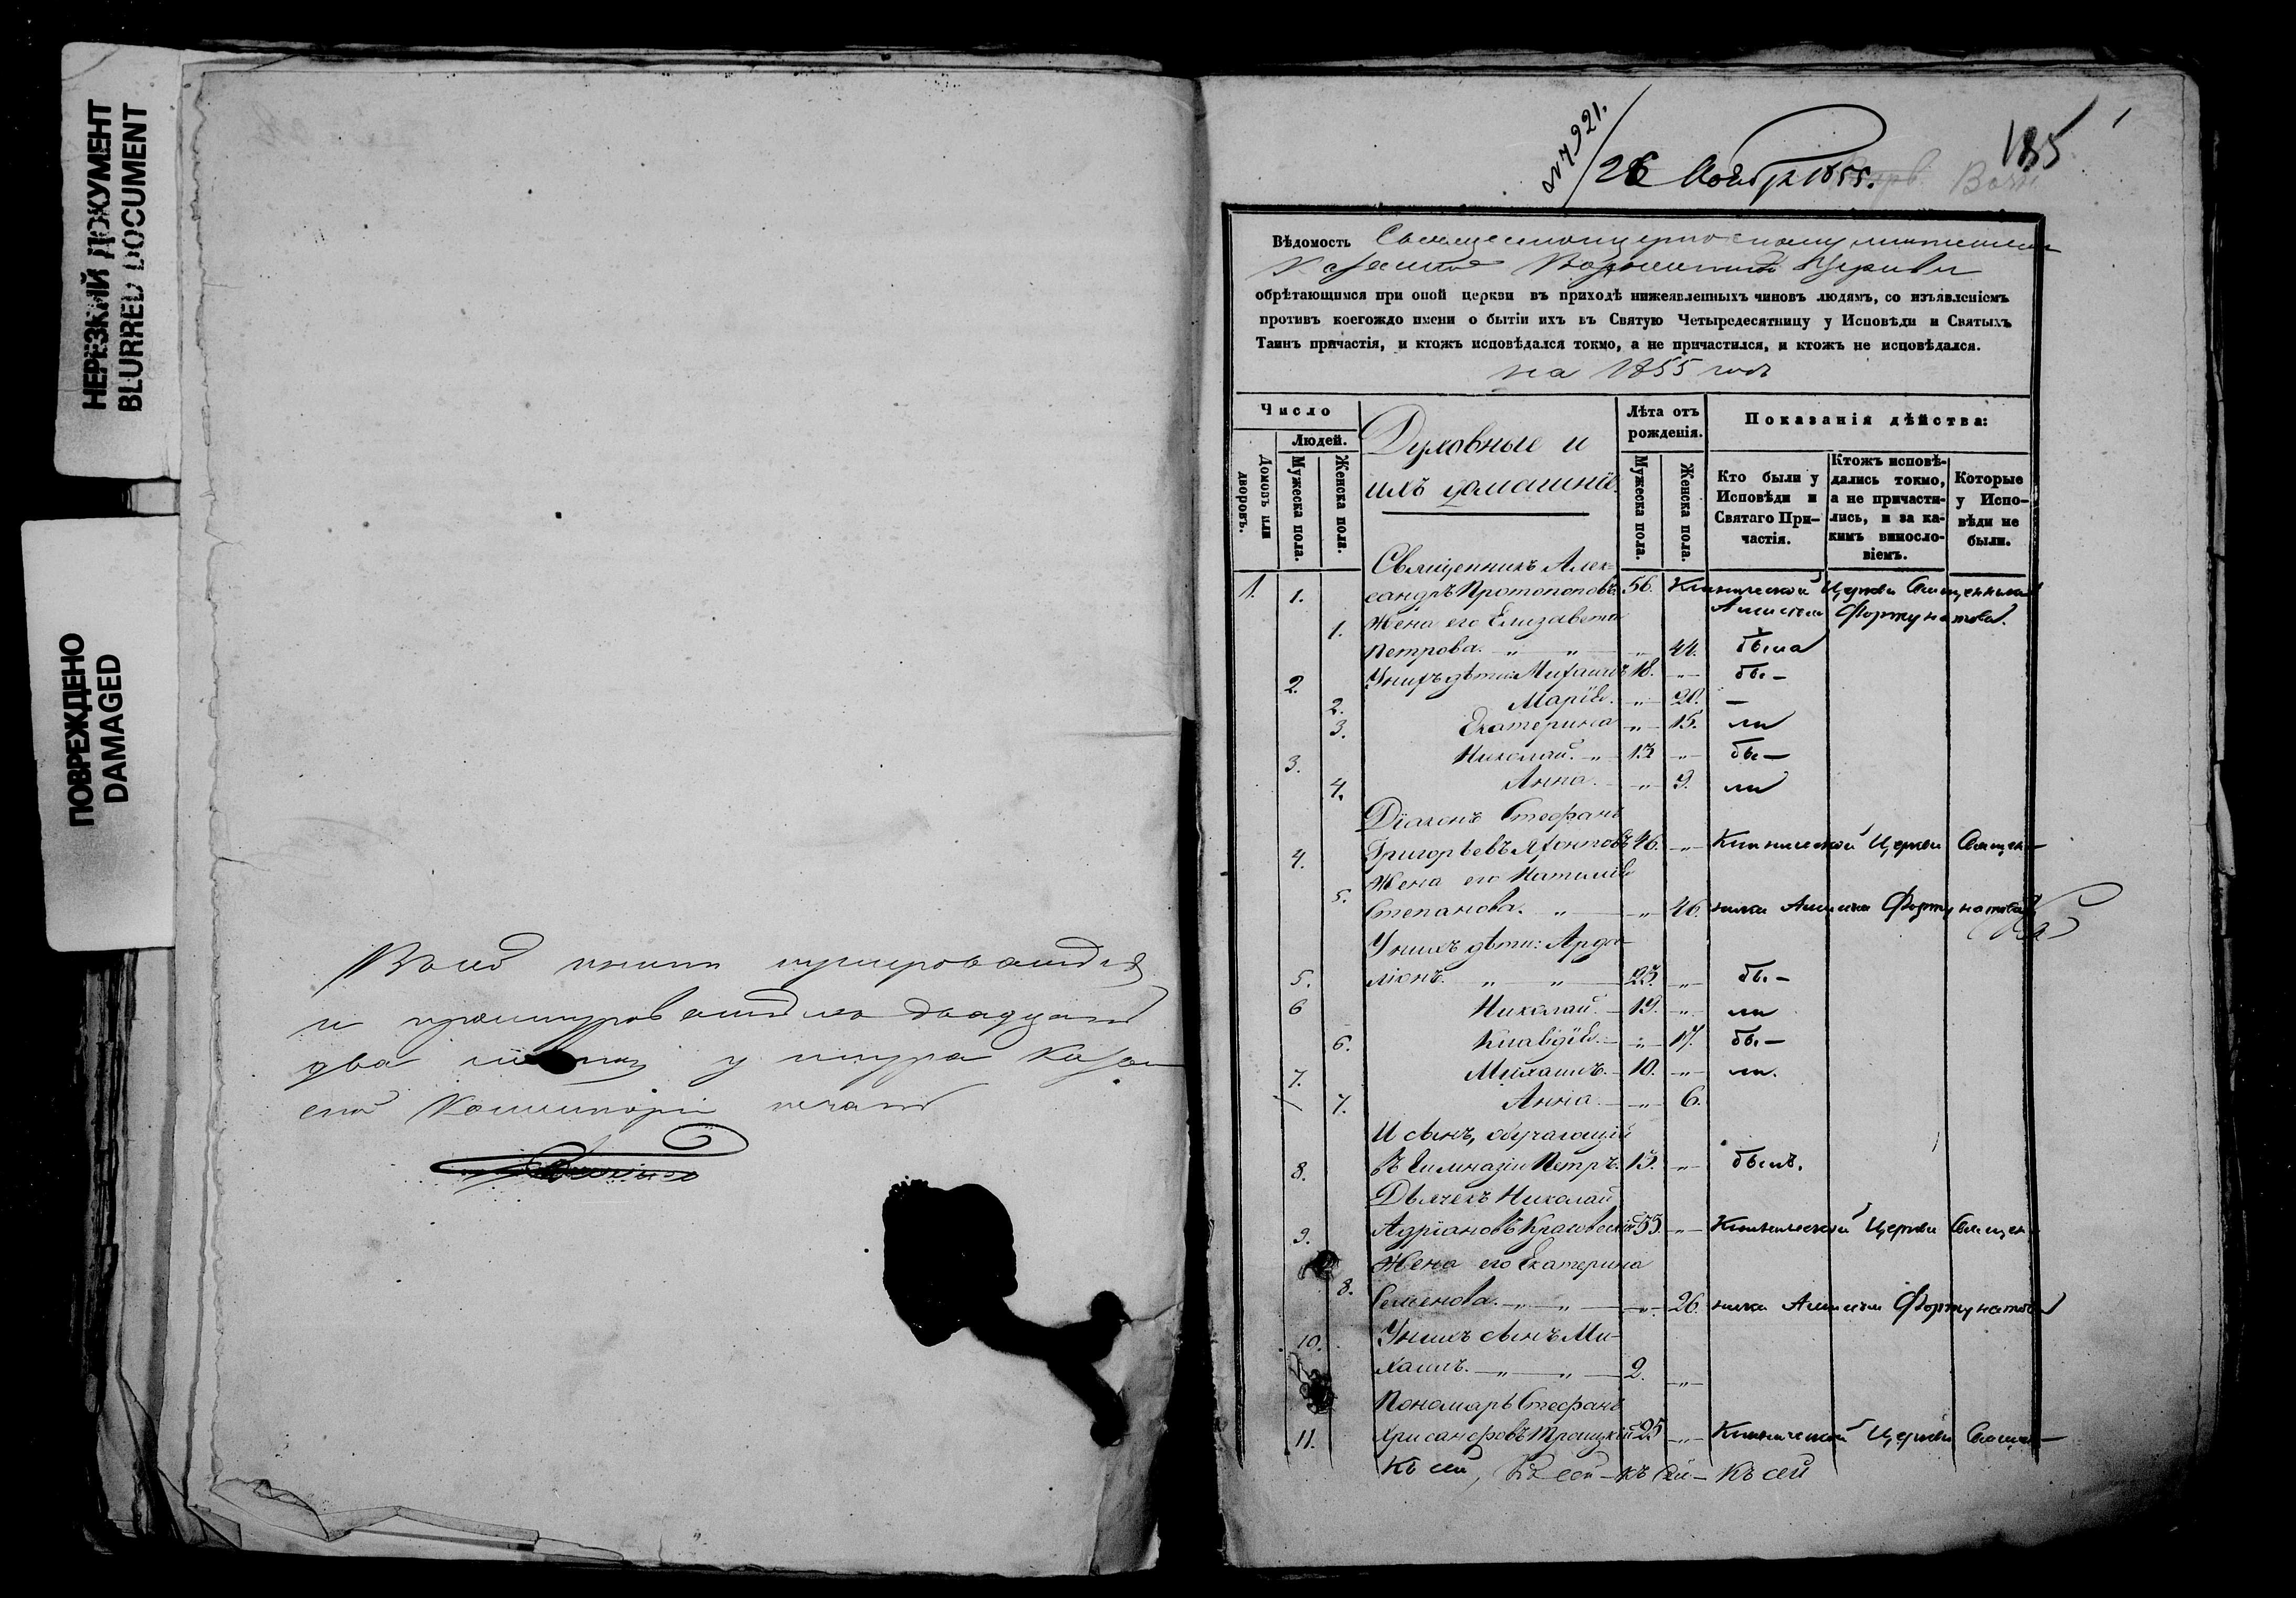 НЕРЕЗКИЙ ДОКУМЕНТ
BLURRED DOCUMENT
ПОВРЕЖДЕНО
DAMAGED
Въ сей книге нумерованныхъ
и прошнурованныхъ двадцать
два листа у шнура Казан
ской Консисторіи печать
№ 7921.
26 Ноября 1855.
185
Вѣдомость
Казанской Церкви
обрѣтающимся при оной церкви въ приходѣ нижеявленныхъ чиновъ людямъ, со изъявленіемъ
противъ коегождо имени о бытіи ихъ въ Святую Четыредесятницу у Исповѣди и Святыхъ
Таинъ причастія, и ктожъ исповѣдался токмо, а не причастился, и ктожъ не исповѣдался.
на 1855 годъ
Число
Людей.
Домовъ или дворовъ.
Мужеска пола.
Женска пола.
Духовные и
ихъ домашніе.
Лѣта отъ рожденія.
Мужеска пола.
Женска пола.
Показанія дѣйства:
Кто были у Исповѣди и Святаго Причастія.
Ктожъ исповѣдались токмо, а не причастились, и за какимъ винословіемъ.
Которые у Исповѣди не были.
Священникъ Алек-
1. 1. сандръ Протопоповъ. 56. Церкви Священникъ
1. Жена его Елизавета Фортунатовъ.
Петрова. „ „ „ 44. была
2. У нихъ дѣти: Михаилъ 18. „ бы-
2. Марія. „ 20. —
3. Екатерина „ 15. ли
3. Николай. „ 13 „ бы-
4. Анна. „ 9. ли
Діаконъ Стефанъ
4. Григорьевъ 46. „ Церкви Священ-
5. Жена его Наталія
Степанова. „ „ 46. ника Фортунатова
У нихъ дѣти: Арда-
5. ліонъ. „ „ 23. „ бы-
6 Николай. 19. „ ли
6. Клавдія. „ 17. бы-
7. Михаилъ. 10. „ ли.
7. Анна. „ 6.
И сынъ, обучающійся
8. въ Гимназіи Петръ. 13. „ былъ.
Дьячекъ Николай
9. Адріановъ 33. „ Церкви Священ-
Жена его Екатерина
8. Семенова. „ „ „ 26. ника Фортунатова
10. У нихъ сынъ Ми-
хаилъ. „ „ 2. „
Пономарь Стефанъ
11. Хрисанфовъ Троицкій 25 „ Церкви Священ-
Къ сей, Къ сей – къ сей – Къ сей